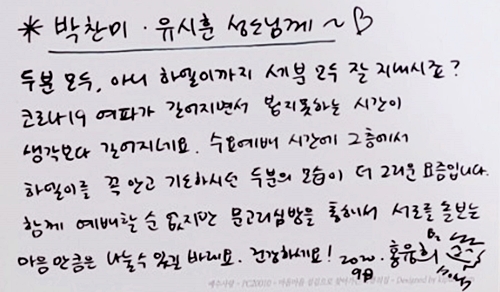 * 박찬미 · 유시훈 성도님께 ~ ♡
두분 모두, 아니 하엘이까지 세분 모두 잘 지내시죠?
코로나19 여파가 길어지면서 뵙지못하는 시간이
생각보다 길어지네요. 수요예배 시간에 2층에서
하엘이를 꼭 안고 기도하시던 두분의 모습이 더 그리운 요즘입니다.
함께 예배할 순 없지만 문고리심방을 통해서 서로를 돌보는
마음 만큼은 나눌 수 있길 바래요. 건강하세요! 2020. 홍유희
9月